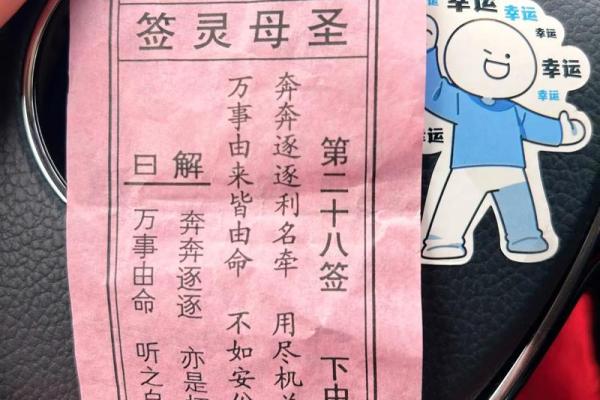 圣母灵签
第二十八签 下
奔奔逐逐利名牵 用尽机
万事由来皆由命 不如安
解曰
奔奔逐逐 亦是
万事由命 听之
幸运
幸运
幸运
幸运
幸运
运